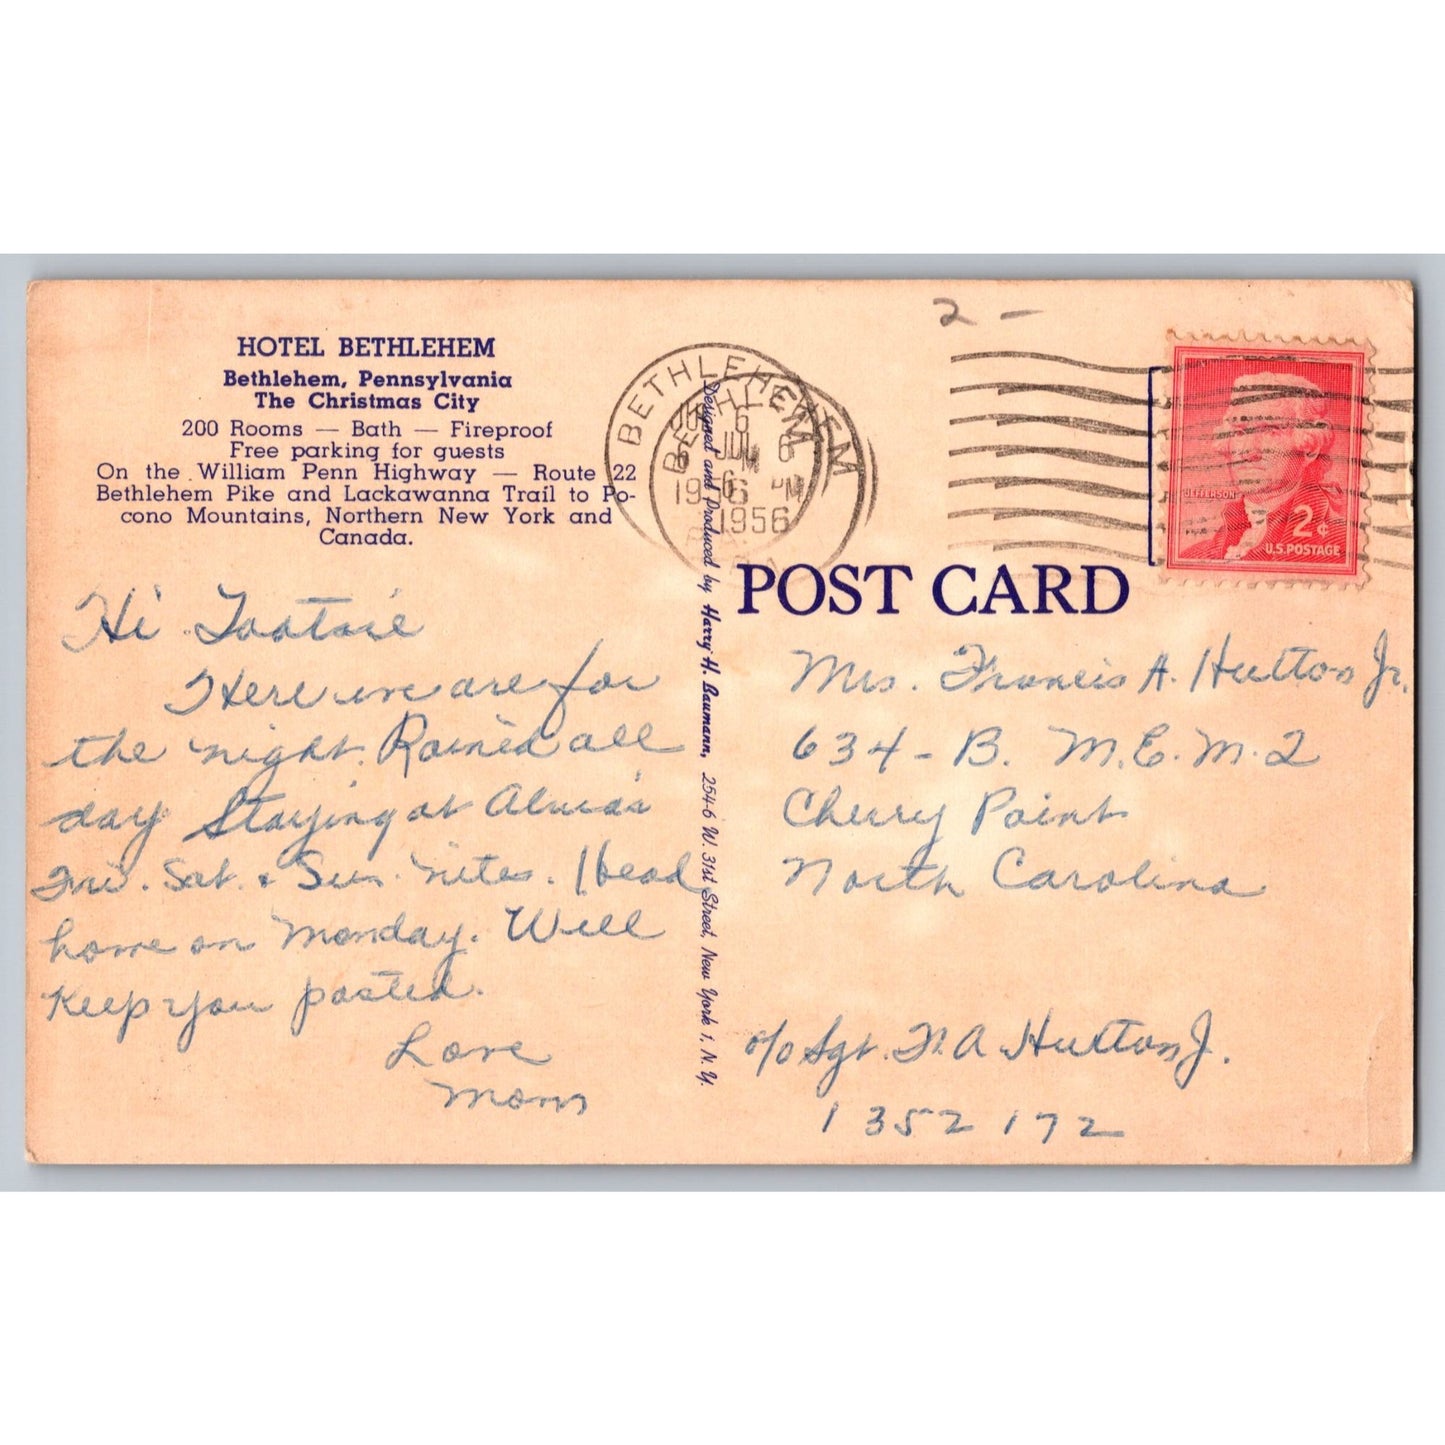 HOTEL BETHLEHEM
Bethlehem, Pennsylvania
The Christmas City
200 Rooms — Bath — Fireproof
Free parking for guests
On the William Penn Highway — Route 22
Bethlehem Pike and Lackawanna Trail to Po-
cono Mountains, Northern New York and
Canada.
Hi Tootsie
Here we are for
the night. Rained all
day. Staying at
Fri. Sat. & Sun. nites. Head
home on Monday. Will
keep you posted.
Love
Mom
Designed and Produced by Harry H. Baumann, 254-6 W. 31st Street, New York 1, N. Y.
BETHLEHEM
BETHLEHEM
JUL 6
6 PM
1956
2 —
JEFFERSON
2¢
U.S. POSTAGE
POST CARD
Mrs. Francis A. Hutton Jr.
634-B. M.E.M.2
Cherry Point
North Carolina
c/o Sgt. F. A. Hutton J.
1352172